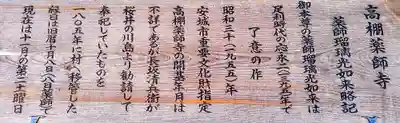 高棚薬師寺
薬師瑠璃光如来略記
御本尊の薬師瑠璃光如来は
足利時代の応永二(一三九五)年で
了意の作
昭和三十(一九五五)年
安城市重要文化財指定
高棚薬師寺の開基年月は
不詳であるが長坂清兵衛が
桜井の川島より勧請して
奉祀していたものを
一八〇五年に村へ移管した
縁日は旧暦十月八日八日薬師で
現在は十一月の第二土曜日